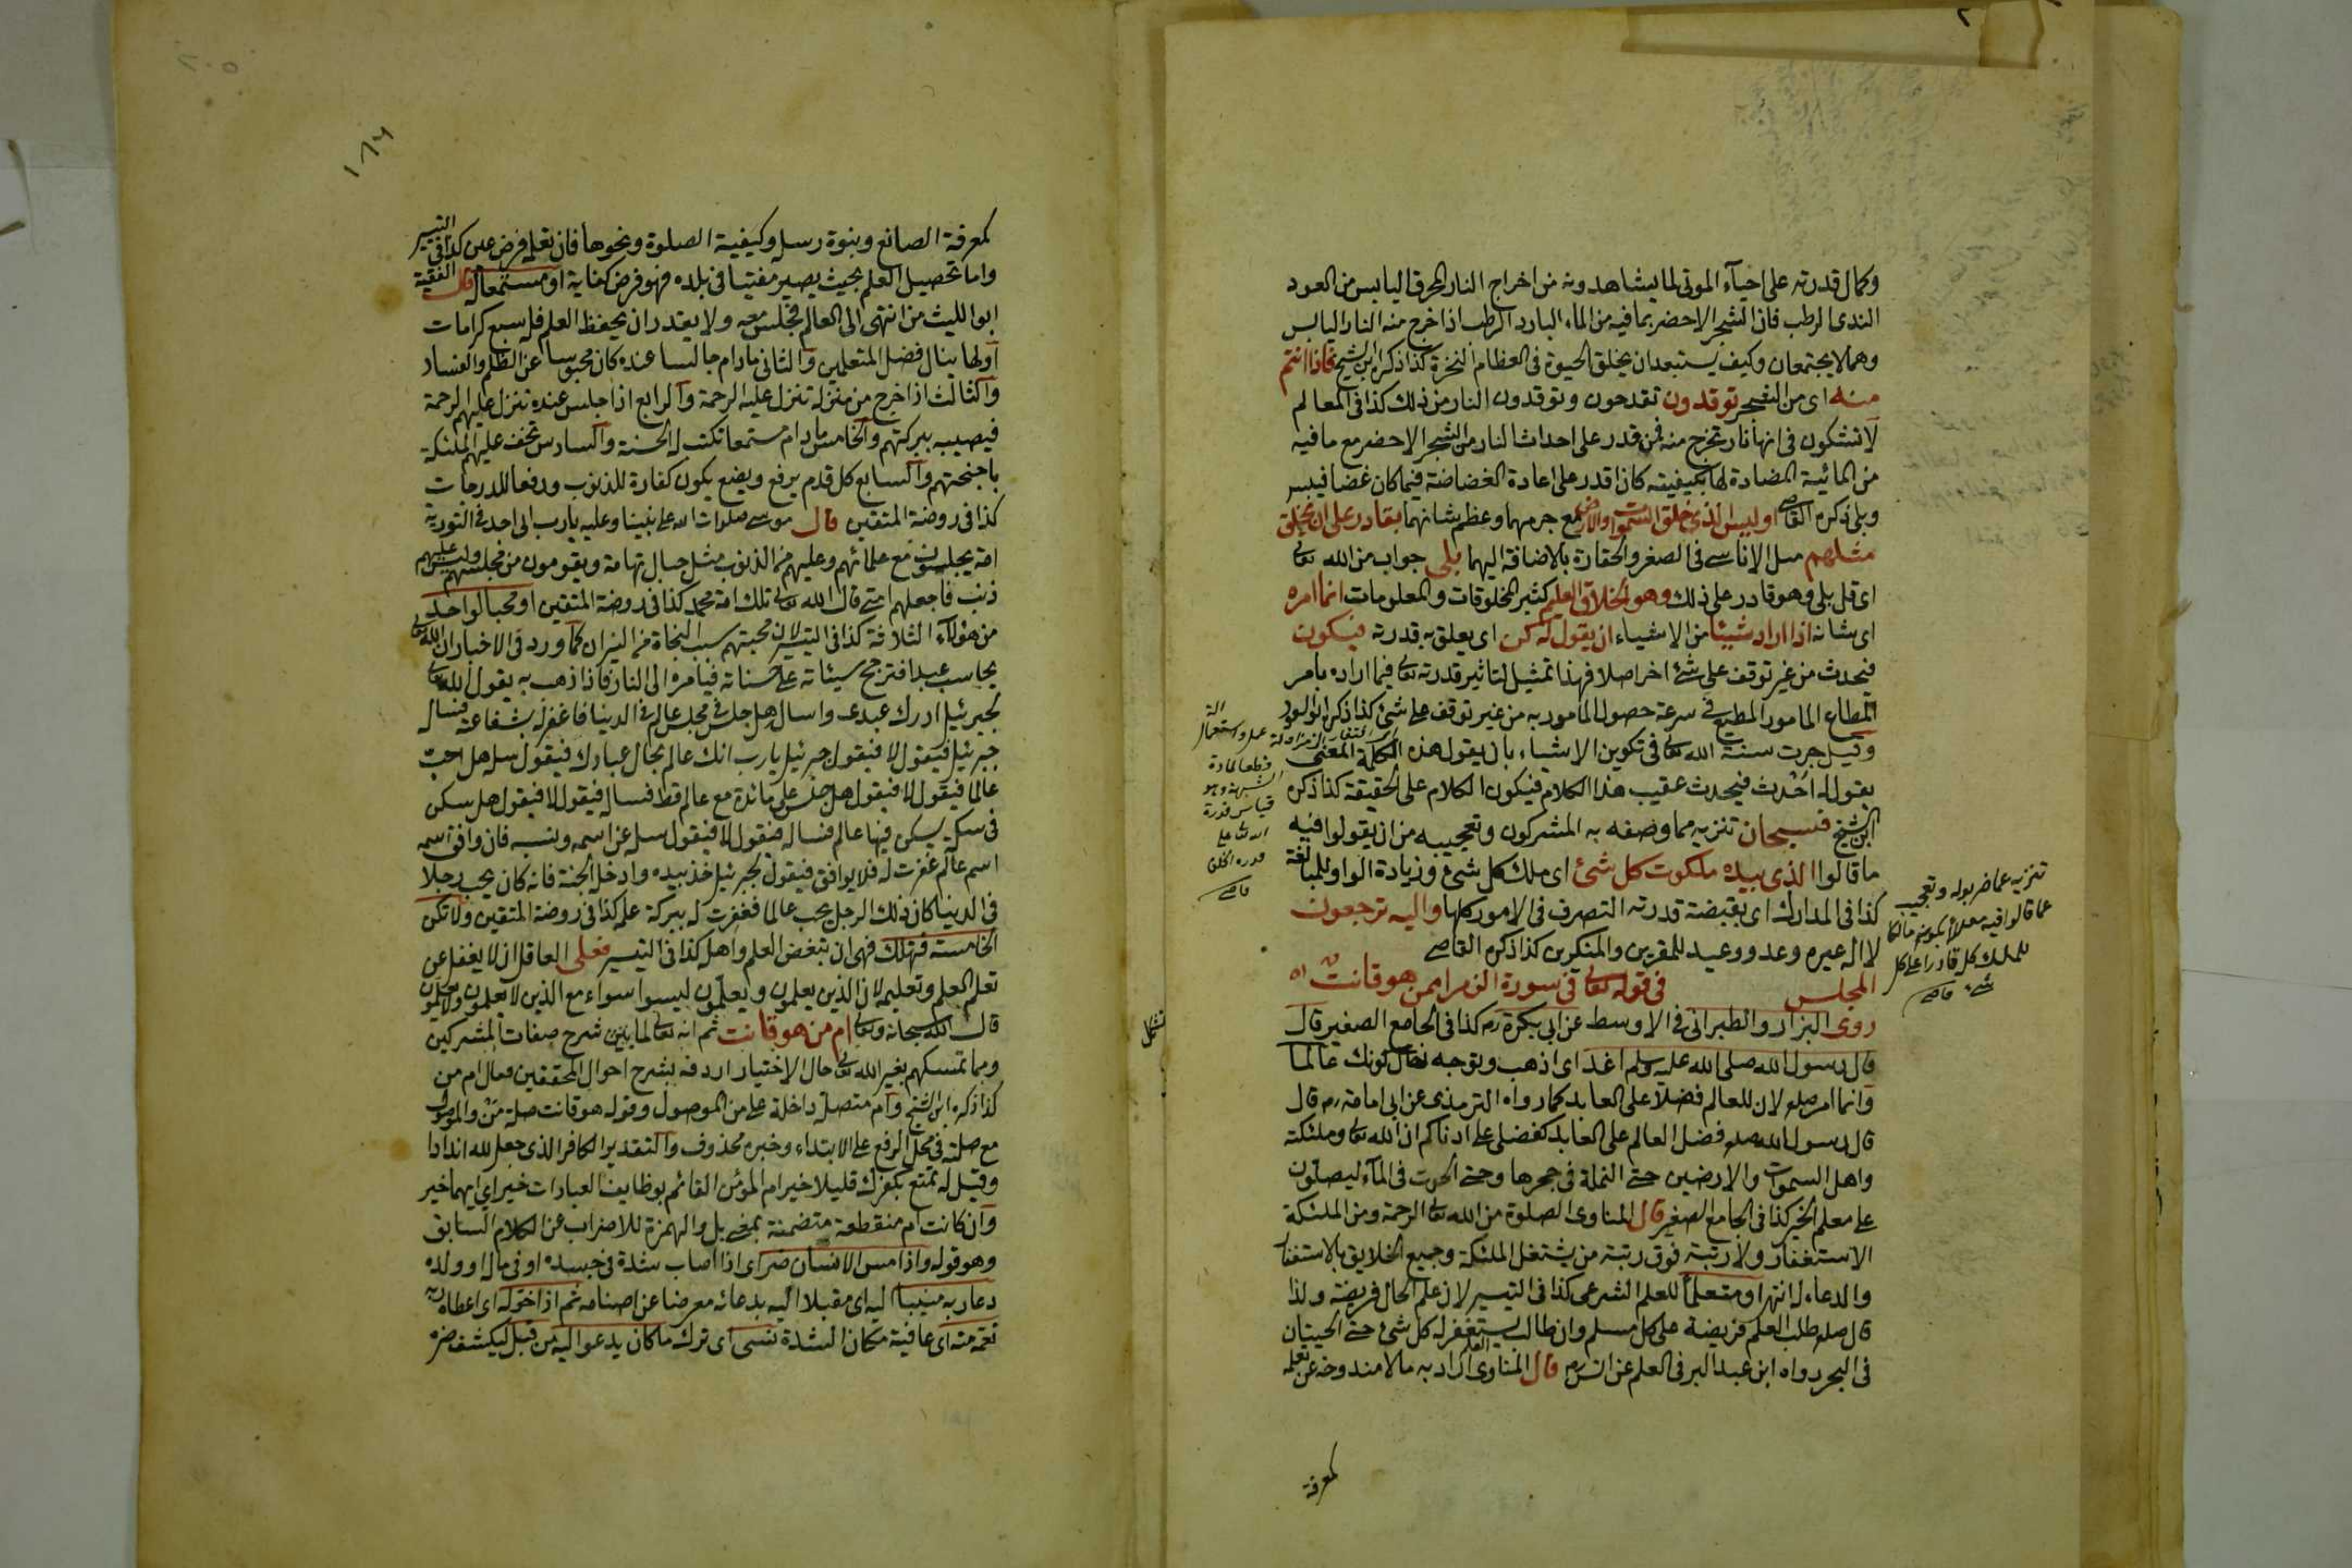 وكمال قدرته على احياء الموتى لما يشاهدونه من اخراج النار المحرق اليابس من العود
الندى الرطب فان الشجر الاخضر بما فيه من الماء البارد الرطب اذا خرج منه النار اليابس
وهما لا يجتمعان وكيف يستبعد ان يخلق الحيوة فى العظام النخرة كذا ذكره ابن الشيخ فاذا انتم
منه اى من الشجر توقدون تقدحون وتوقدون النار من ذلك كذا فى المعالم
لا تشكون فى انها نار تخرج منه فمن قدر على احداث النار من الشجر الاخضر مع ما فيه
من المائية المضادة لها بكيفيته كان اقدر على اعادة الغضاضة فيما كان غضا فيبس
وبلى ذكره القاضى اوليس الذى خلق السموات والارض مع جرمهما وعظم شانهما بقادر على ان يخلق
مثلهم مثل الاناسى فى الصغر والحقارة بالاضافة اليهما بلى جواب من الله تعالى
اى قل بلى وهو قادر على ذلك وهو الخلاق العليم كثير المخلوقات والمعلومات انما امره
اى شانه اذا اراد شيئا من الاشياء ان يقول له كن اى يعلق به قدرته فيكون
فيحدث من غير توقف على شئ اخر اصلا فهذا تمثيل لتاثير قدرته تعالى فيما اراده بامر
المطاع المامور المطيع فى سرعة حصول المامور به من غير توقف على شئ كذا ذكر ابو السعود
وقيل جرت سنت الله تعالى فى تكوين الاشياء بان يقول هذه الكلمة المعنى
يقول له احدث فيحدث عقيب هذا الكلام فيكون الكلام على الحقيقة كذا ذكره
ابن الشيخ فسبحان تنزيه مما وصفه به المشركون وتعجيبه من ان يقولوا فيه
ما قالوا الذى بيده ملكوت كل شئ اى ملك كل شئ وزيادة الواو للمبالغة
كذا فى المدارك اى بقبضة قدرته التصرف فى الامور كلها واليه ترجعون
لا اله غيره وعد ووعيد للمقرين والمنكرين كذا ذكره القاضى
المجلس فى قوله تعالى فى سورة الزمر امن هو قانت اه
روى البزار والطبرانى فى الاوسط عن ابى بكرة رم كذا فى الجامع الصغير قال
قال رسول الله صلى الله عليه وسلم اغد اى اذهب وتوجه حال كونك عالما
وانما امر صلعم لان للعالم فضلا على العابد كما رواه الترمذى عن ابى امامة رم قال
قال رسول الله صلعم فضل العالم على العابد كفضلى على ادناكم ان الله تعالى وملئكته
واهل السموات والارضين حتى النملة فى جحرها وحتى الحوت فى الماء ليصلون
على معلم الخير كذا فى الجامع الصغير قال المناوى الصلوة من الله تعالى الرحمة ومن الملئكة
الاستغفار ولا رتبة فوق رتبة من يشتغل الملئكة وجميع الخلايق بالاستغفار
والدعاء له انتهى او متعلما للعلم الشرعى كذا فى التيسير لان علم الحال فريضة ولذا
قال صلعم طلب العلم فريضة على كل مسلم وان طالب العلم يستغفر له كل شئ حتى الحيتان
فى البحر رواه ابن عبد البر فى العلم عن انس رم قال المناوى اراد به ما لا مندوحة عن تعلمه
لمعرفة
تنزيه عما ضربوا له وتعجيب
عما قالوا فيه معللا بكونه مالكا
للملك كل قادرا على كل
شئ قاضى
قطعا لمادة
الشبهة وهو
قياس قدرة
الله تعالى على
قدرة الخلق
قاضى
١٨٦
٢٠٥
لمعرفة الصانع ونبوة رسله وكيفية الصلوة ونحوها فان تعلمه فرض عين كذا فى التيسير
واما تحصيل العلم بحيث يصير مفتيا فى بلده فهو فرض كفاية او مستمعا قال الفقيه
ابو الليث من انتهى الى العالم فجلس معه ولا يقدر ان يحفظ العلم فله سبع كرامات
اولها ينال فضل المتعلمين والثانى مادام جالسا عنده كان محبوسا عن الظلم والفساد
والثالث اذا خرج من منزله تنزل عليه الرحمة والرابع اذا جلس عنده تنزل عليهم الرحمة
فيصيبه ببركتهم والخامس مادام مستمعا تكتب له الحسنة والسادس تحف عليهم الملئكة
باجنحتهم والسابع كل قدم يرفع ويضع يكون كفارة للذنوب ورفعا للدرجات
كذا فى روضة المتقين قال موسى صلوات الله على نبينا وعليه يارب انى اجد فى التورية
امة يجلسون مع علمائهم وعليهم من الذنوب مثل جبال تهامة ويقومون من مجلسهم وليس عليهم
ذنب فاجعلهم امتى قال الله تعالى تلك امة محمد كذا فى روضة المتقين او محبا لواحد
من هؤلاء الثلاثة كذا فى التيسير لان محبتهم سبب النجاة من النيران كما ورد فى الاخبار ان الله تعالى
يحاسب عبدا فترجح سيئاته على حسناته فيامره الى النار فاذا ذهب به يقول الله تعالى
لجبرئيل ادرك عبدى واسال هل جلس فى مجلس عالم فى الدنيا فاغفر له بشفاعته فيسال
جبرئيل فيقول لا فيقول جبرئيل يارب انك عالم بحال عبادك فيقول سله هل احب
عالما فيقول لا فيقول هل جلس على مائدة مع عالم قط فسال فيقول لا فيقول هل سكن
فى سكة يسكن فيها عالم فسال فيقول لا فيقول سله عن اسمه ونسبه فان وافق اسمه
اسم عالم غفرت له فلا يوافق فيقول لجبرئيل خذ بيده وادخله الجنة فانه كان يحب رجلا
فى الدنيا كان ذلك الرجل يحب عالما فغفرت له ببركة علمه كذا فى روضة المتقين ولا تكن
الخامسة فتهلك فهى ان تبغض العلم واهله كذا فى التيسير فعلى العاقل ان لا يغفل عن
تعلم العلم وتعليمه لان الذين يعلمون ويعلمون ليسوا سواء مع الذين لا يعلمون ولا يعلمون
قال الله سبحانه وتعالى ام من هو قانت ثم انه تعالى لما بين شرح صفات المشركين
وبما تمسكهم بغير الله تعالى حال الاختيار اردفه بشرح احوال المحققين فقال ام من
كذا ذكره ابن الشيخ وام متصلة داخلة على من الموصول وقوله هو قانت صلة من والموصول
مع صلته فى محل الرفع على الابتداء وخبره محذوف والتقدير الكافر الذى جعل لله اندادا
وقيل له تمتع بكفرك قليلا خير ام المؤمن القائم بوظايف العبادات خير اى ايهما خير
وان كانت ام منقطعة متضمنة بمعنى بل والهمزة للاضراب عن الكلام السابق
وهو قوله واذا مس الانسان ضر اى اذا اصاب شدة فى جسده او فى ماله او ولده
دعا ربه منيبا اليه اى مقبلا اليه بدعائه معرضا عن اصنامه ثم اذا خوله اى اعطاه ربه
نعمة منه اى عافية مكان الشدة نسى اى ترك ما كان يدعو اليه من قبل ليكشف ضره